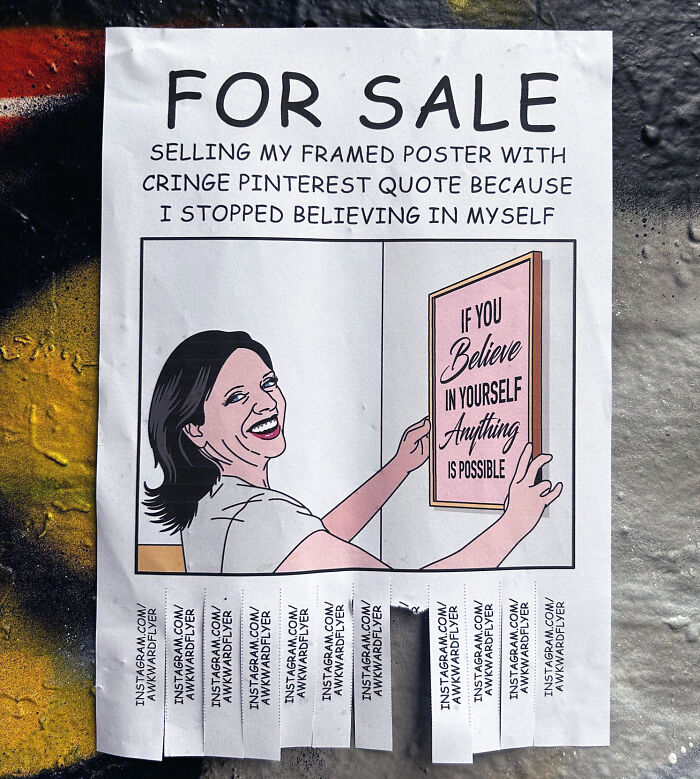 FOR SALE
SELLING MY FRAMED POSTER WITH
CRINGE PINTEREST QUOTE BECAUSE
I STOPPED BELIEVING IN MYSELF
IF YOU
Believe
IN YOURSELF
Anything
IS POSSIBLE
INSTAGRAM.COM/
AWKWARDFLYER
INSTAGRAM.COM/
AWKWARDFLYER
INSTAGRAM.COM/
AWKWARDFLYER
INSTAGRAM.COM/
AWKWARDFLYER
INSTAGRAM.COM/
AWKWARDFLYER
INSTAGRAM.COM/
AWKWARDFLYER
INSTAGRAM.COM/
AWKWARDFLYER
INSTAGRAM.COM/
AWKWARDFLYER
INSTAGRAM.COM/
AWKWARDFLYER
INSTAGRAM.COM/
AWKWARDFLYER
INSTAGRAM.COM/
AWKWARDFLYER